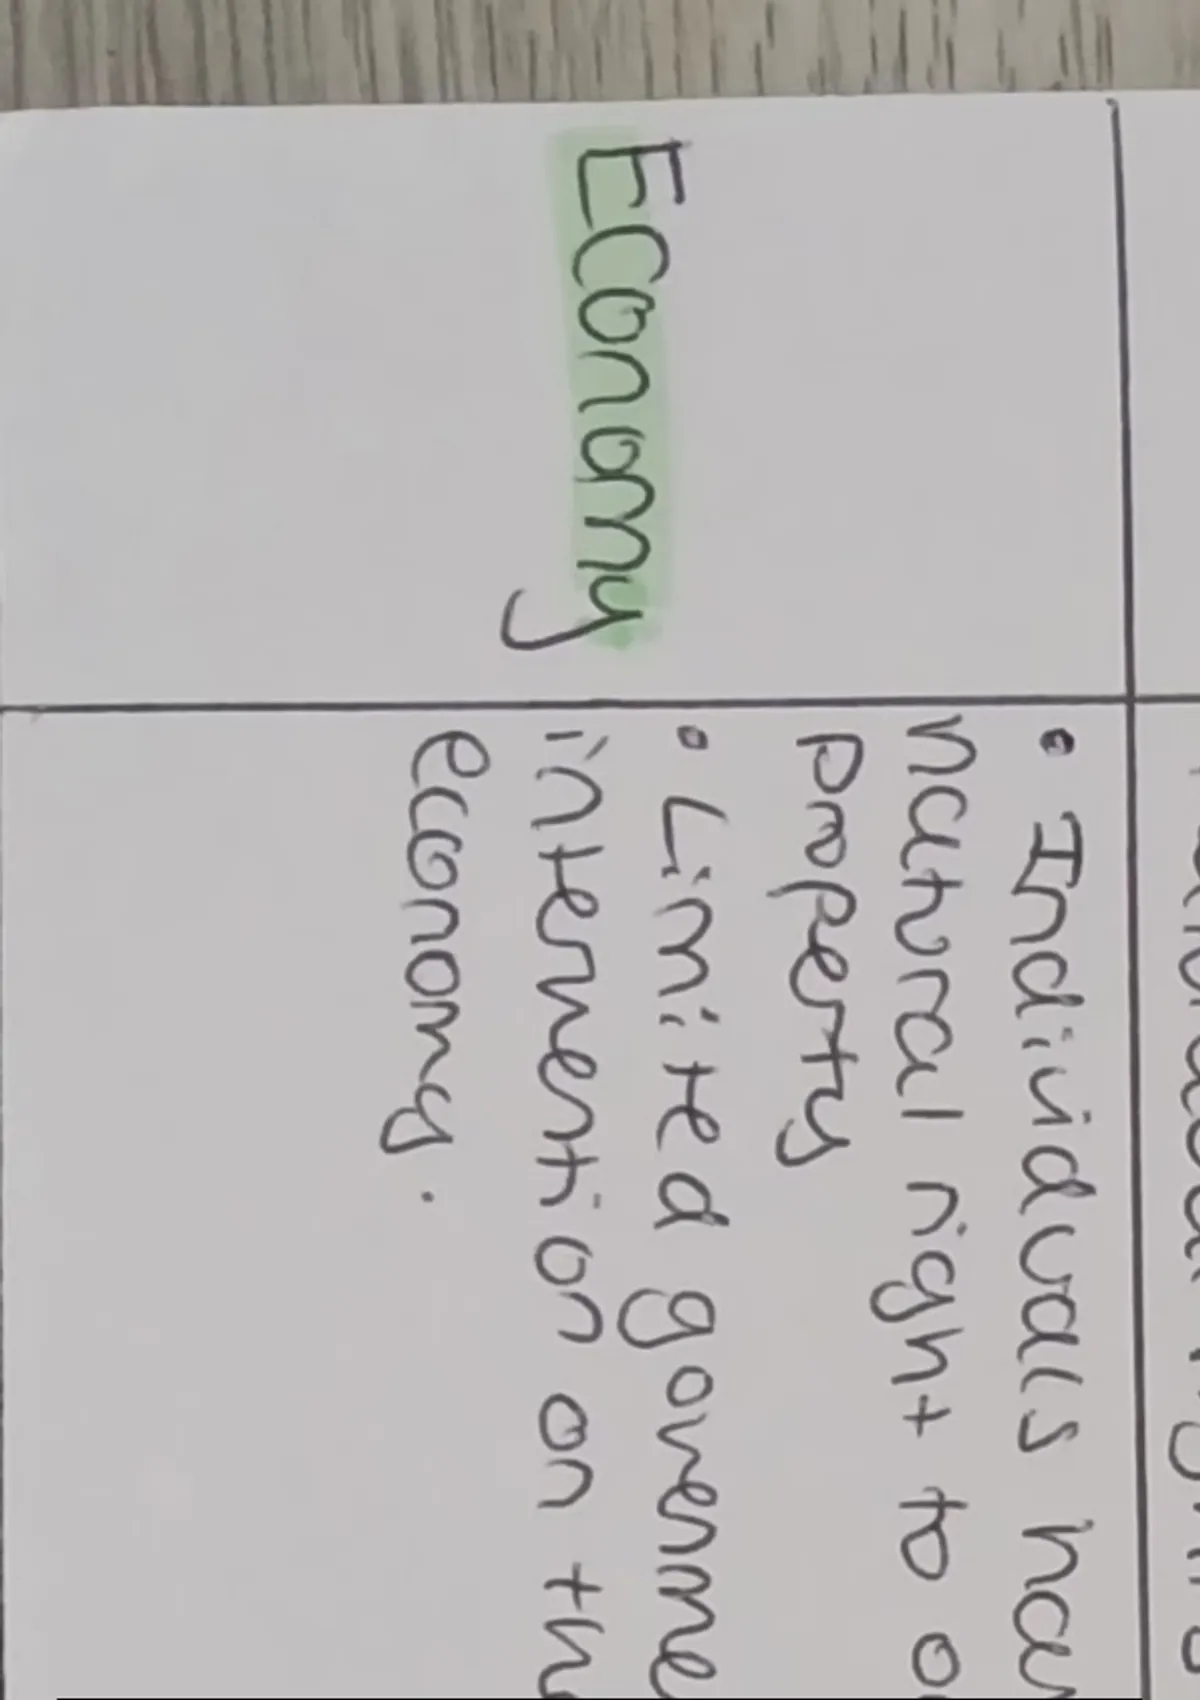 Economy
• Individuals hav
natural right to o
property
• Limited governme
intervention on the
economy.